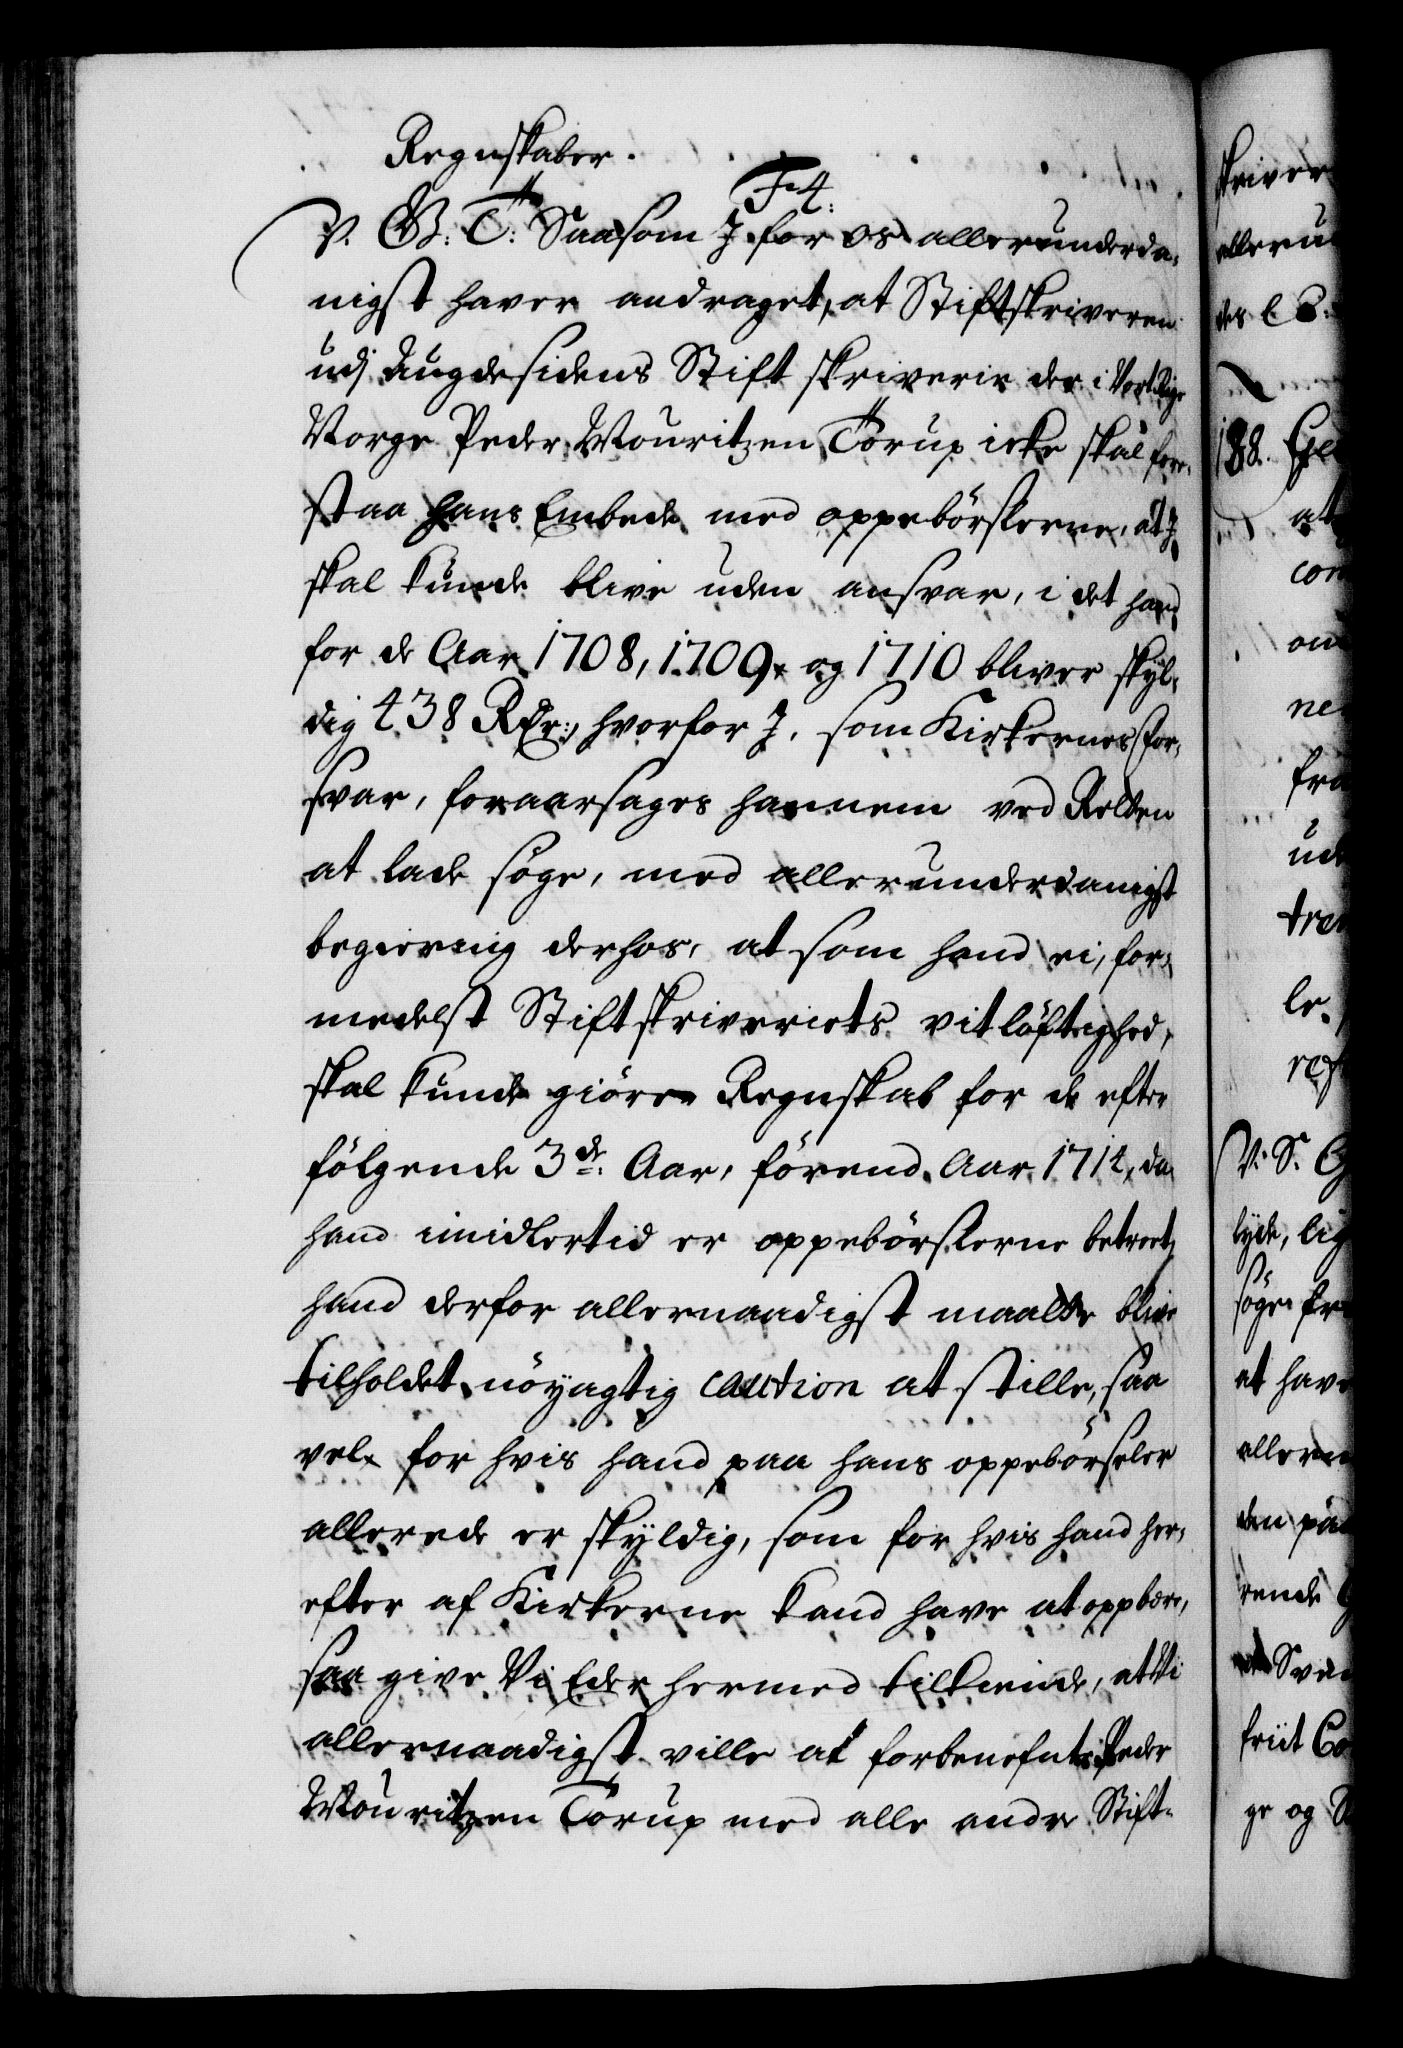 Regnskaber.
F4.
V. G: T: Saasom J for os allerunderda-
nigst haver andraget, at Stiftskriveren
udj Augdesidens Stift skriverie der i Vort Rige
Norge Peder Mouritzen Torup icke skal fore-
staa hans Embede med oppebörslerne, at J
skal kunde blive uden ansvar, i det hand
for de Aar 1708, 1709, og 1710 bliver skyl-
dig 438 Rdr:, hvorfor J, som Kirkernes for-
svar, foraarsages hannem ved Retten
at lade söge, med allerunderdanigst
begiering derhos, at som hand ei, for-
medelst Stiftskriveriets vitlöftighed,
skal kunde giöre Regnskab for de efter
fölgende 3de. Aar, förend Aar 1714, da
hand imidlertid er oppebörslerne betroet,
hand derfor allernaadigst maatte blive
tilholdet nöyagtig caution at stille, saa
vel for hvis hand paa hans oppebörseler
allerede er skyldig, som for hvis hand her-
efter af Kirkerne kand have at oppbære,
saa give Vi Eder hermed tilkiende, at Vi
allernaadigst ville at forbenefnte Peder
Mouritzen Torup med alle andre Stift-
skriver
188.
V. S.
lyde, lig
at have
ge og